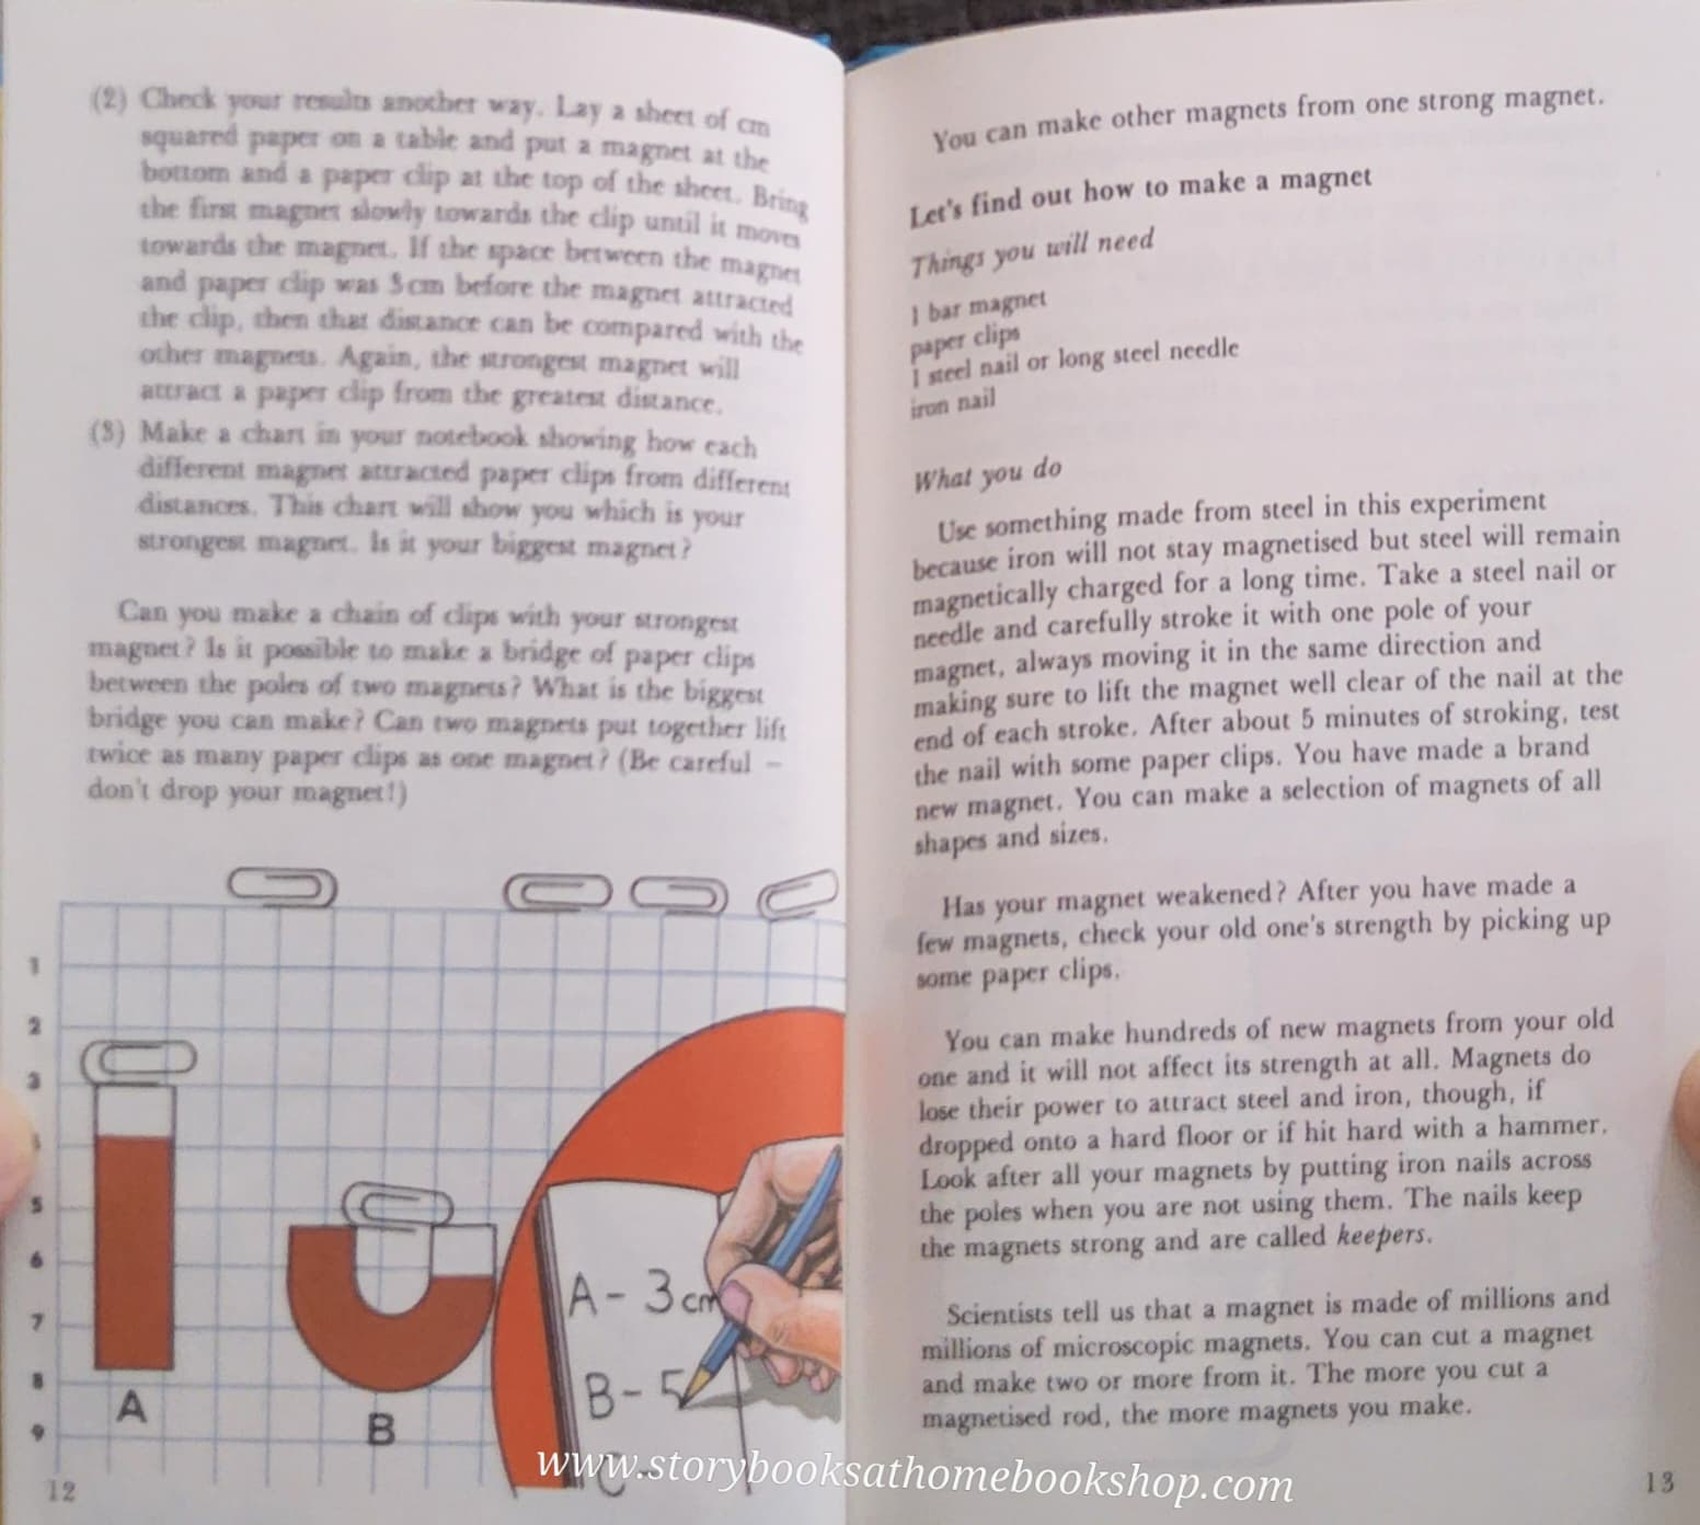 (2) Check your results another way. Lay a sheet of cm
squared paper on a table and put a magnet at the
bottom and a paper clip at the top of the sheet. Bring
the first magnet slowly towards the clip until it moves
towards the magnet. If the space between the magnet
and paper clip was 3 cm before the magnet attracted
the clip, then that distance can be compared with the
other magnets. Again, the strongest magnet will
attract a paper clip from the greatest distance.
(3) Make a chart in your notebook showing how each
different magnet attracted paper clips from different
distances. This chart will show you which is your
strongest magnet. Is it your biggest magnet?
Can you make a chain of clips with your strongest
magnet? Is it possible to make a bridge of paper clips
between the poles of two magnets? What is the biggest
bridge you can make? Can two magnets put together lift
twice as many paper clips as one magnet? (Be careful –
don't drop your magnet!)
1
2
3
5
6
7
8
9
A
B
A - 3 cm
B - 5
C -
12
You can make other magnets from one strong magnet.
Let's find out how to make a magnet
Things you will need
1 bar magnet
paper clips
1 steel nail or long steel needle
iron nail
What you do
Use something made from steel in this experiment
because iron will not stay magnetised but steel will remain
magnetically charged for a long time. Take a steel nail or
needle and carefully stroke it with one pole of your
magnet, always moving it in the same direction and
making sure to lift the magnet well clear of the nail at the
end of each stroke. After about 5 minutes of stroking, test
the nail with some paper clips. You have made a brand
new magnet. You can make a selection of magnets of all
shapes and sizes.
Has your magnet weakened? After you have made a
few magnets, check your old one's strength by picking up
some paper clips.
You can make hundreds of new magnets from your old
one and it will not affect its strength at all. Magnets do
lose their power to attract steel and iron, though, if
dropped onto a hard floor or if hit hard with a hammer.
Look after all your magnets by putting iron nails across
the poles when you are not using them. The nails keep
the magnets strong and are called keepers.
Scientists tell us that a magnet is made of millions and
millions of microscopic magnets. You can cut a magnet
and make two or more from it. The more you cut a
magnetised rod, the more magnets you make.
13
www.storybooksathomebookshop.com